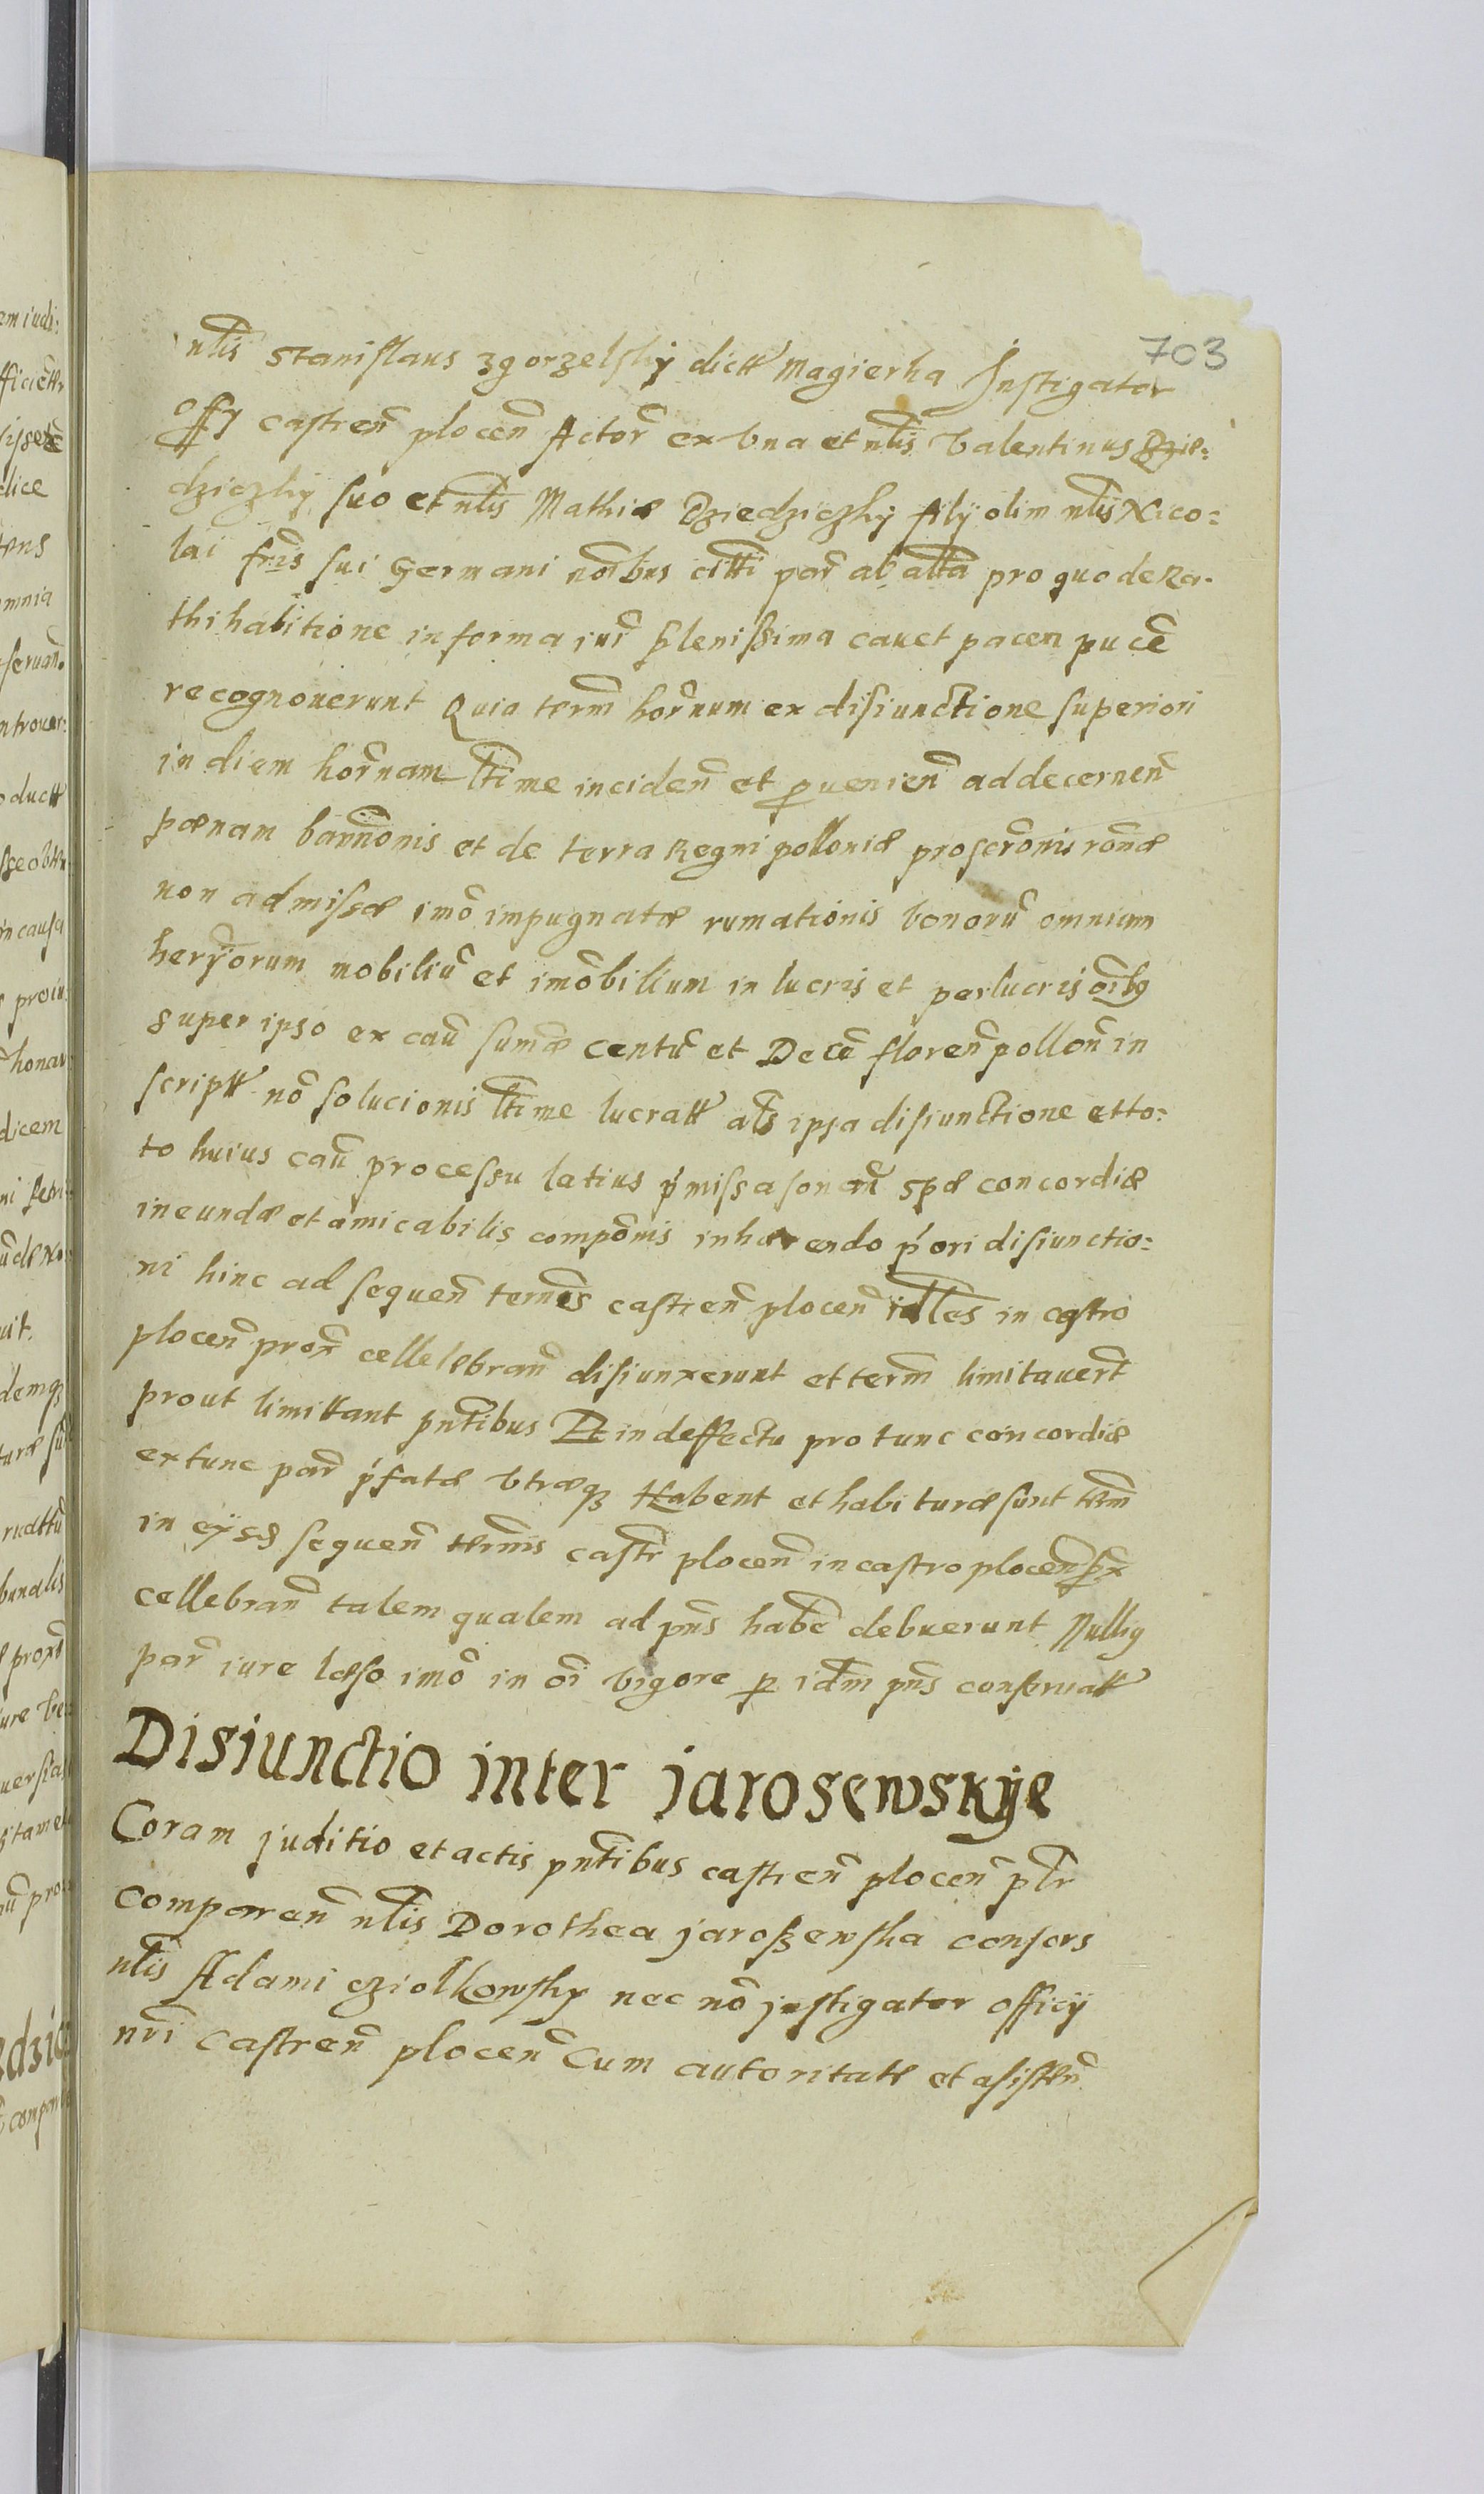 703
nlis Stanislaus Zgorzelskÿ dictt Magierka Instigator
offÿ castren̄ plocen̄ Actor̄ ex vna et nlis Valentinus Dzie:
dziczkÿ suo et nlis Mathiæ Dziedziczkÿ filÿ olim nlis Nico:
lai frīs sui Germani nōibus cittī par̄ ab alta pro quo de Ra-
thihabitione in forma iur̄ plenissima cauet pacen pucē
recognouerunt Quia term̄ hor̄num ex disiunctione superiori
in diem hor̄nam ltīme inciden̄ et ꝓuenien̄ ad decernen̄
pœnam ban̄nōnis et de terra Regni polloniæ proscrōnis rōnæ
non admissæ imō impugnatæ rumationis bonorū omnium
herÿorum mobiliū et imōbilium in lucris et perlucris oībꝰ
super ipso ex caū sum̄æ centū et Decē floren̄ pollon̄ in
scriptt nō solucionis ltīme lucratt als ipsa disiunctione et to:
to huius caū processu latius p̄missa sonan̄ spæ concordiæ
ineundæ et amicabilis compōnis inhærendo p̄ori disiunctio:
ni hinc ad sequen̄ termīs castren̄ plocen̄ in castro
plocen̄ prox̄ cellelebran̄ disiunxerunt et term̄ limitauer̄t
prout limittant pn̄tibus Et in deffectu pro tunc concordiæ
ex tunc par̄ p̄fatæ vtræqꝫ Habent et habituræ sunt term̄
in eÿsd sequen̄ term̄is castr̄ plocen̄ in castro plocen̄ prx̄
cellebran̄ talem qualem ad pn̄s haberē debuerunt Nullꝰ
par̄ iure læso imō in oī vigore ꝑ idm̄ pn̄s conseruatt
Disiunctio inter jarosewskÿe
Coram juditio et actis pn̄tibus castren̄ plocen̄ plr̄
comparen̄ nlis Dorothea jaroszewska consors
nlis Adami cziolkowsky nec nō jnstigator officÿ
nrī castren̄ plocen̄ Cum autoritate et asisten̄